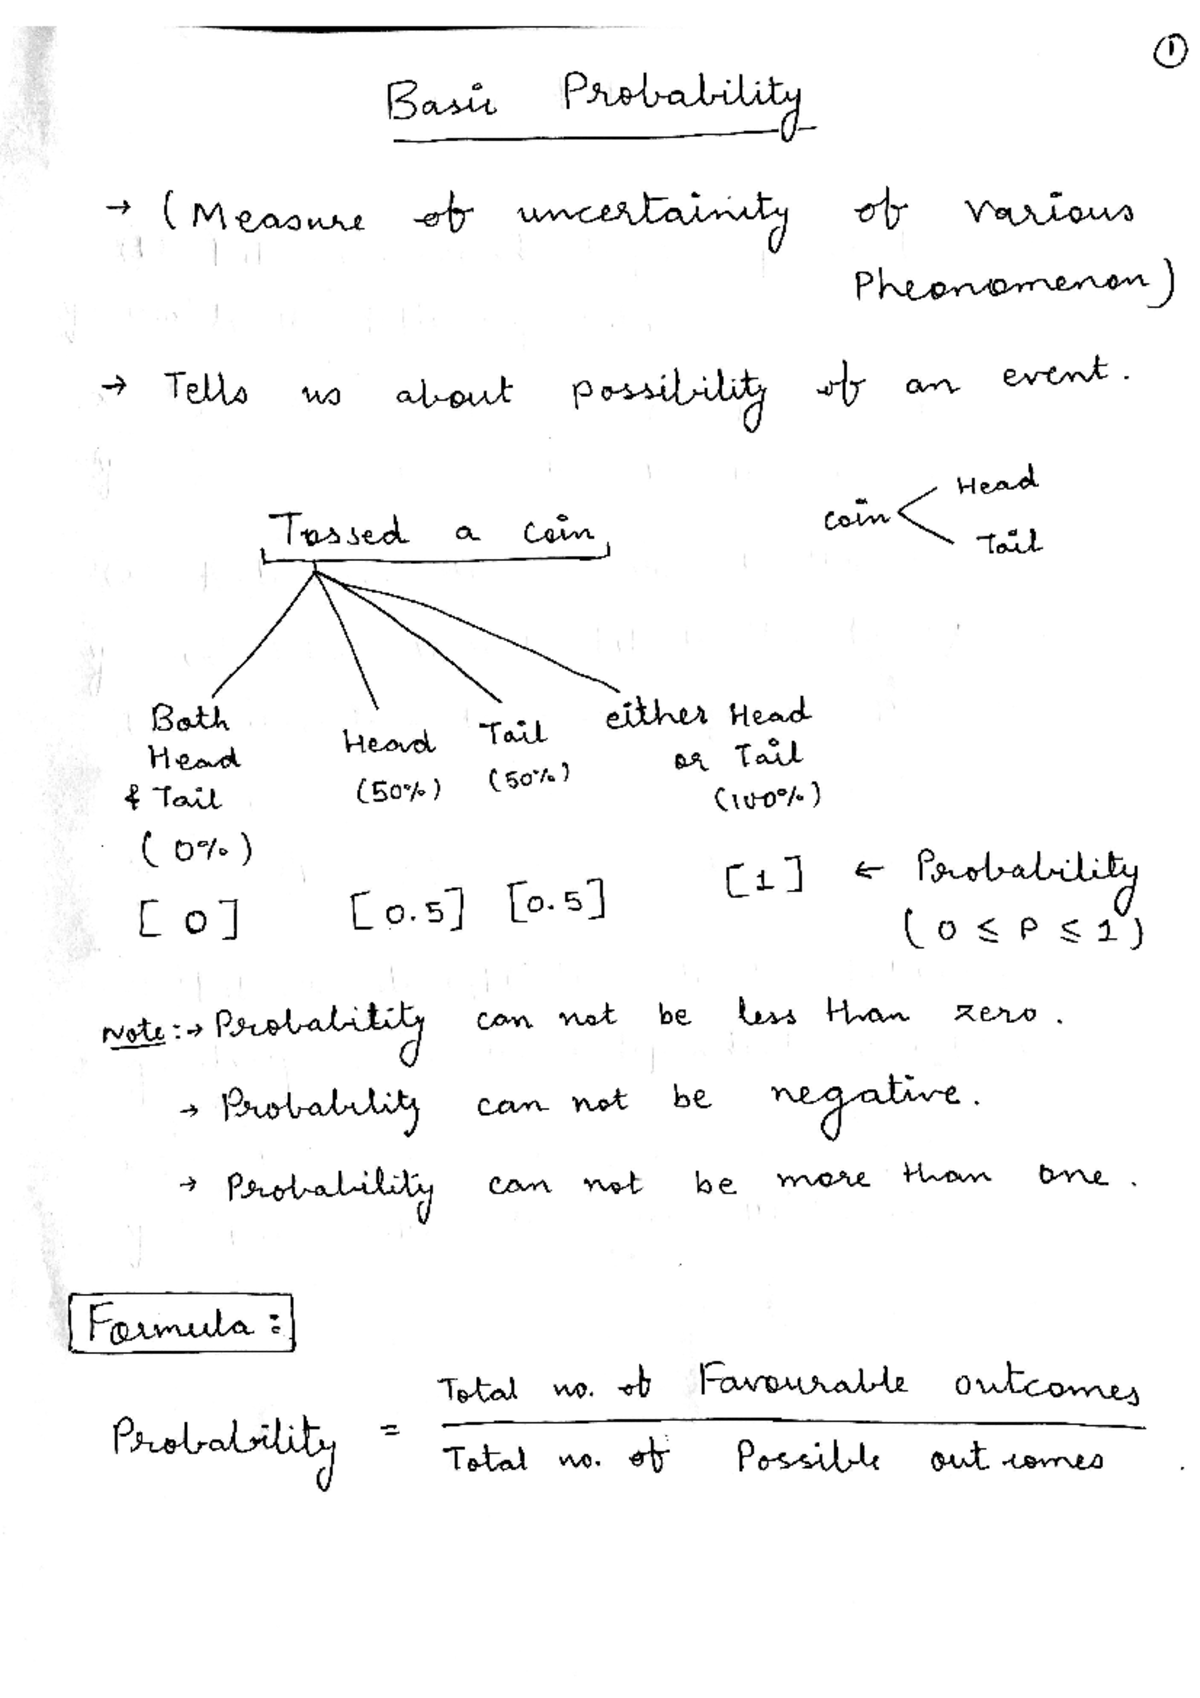 ①
Basic Probability
→ (Measure of uncertainity of various
Pheonomenon)
→ Tells us about possibility of an event.
coin Head
Tail
Tossed a coin
Both
Head
& Tail
(0%)
Head
(50%)
Tail
(50%)
either Head
or Tail
(100%)
[0] [0.5] [0.5] [1] ← Probability
(0 ≤ P ≤ 1)
Note :→ Probability can not be less than zero.
→ Probability can not be negative.
→ Probability can not be more than one.
Formula:
Probability = Total no. of Favourable outcomes
Total no. of Possible outcomes.